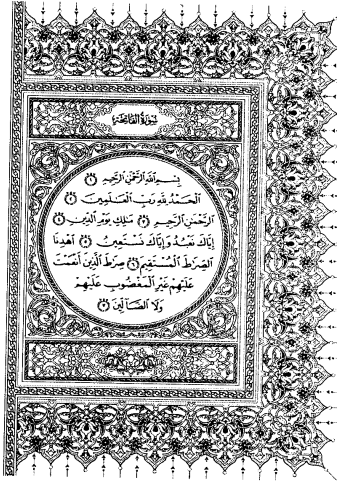 سورة الفاتحة
بِسْمِ اللَّهِ الرَّحْمَٰنِ الرَّحِيمِ ۝
الْحَمْدُ لِلَّهِ رَبِّ الْعَالَمِينَ ۝
الرَّحْمَٰنِ الرَّحِيمِ ۝ مَالِكِ يَوْمِ الدِّينِ ۝
إِيَّاكَ نَعْبُدُ وَإِيَّاكَ نَسْتَعِينُ ۝ اهْدِنَا
الصِّرَاطَ الْمُسْتَقِيمَ ۝ صِرَاطَ الَّذِينَ أَنْعَمْتَ
عَلَيْهِمْ غَيْرِ الْمَغْضُوبِ عَلَيْهِمْ
وَلَا الضَّالِّينَ ۝